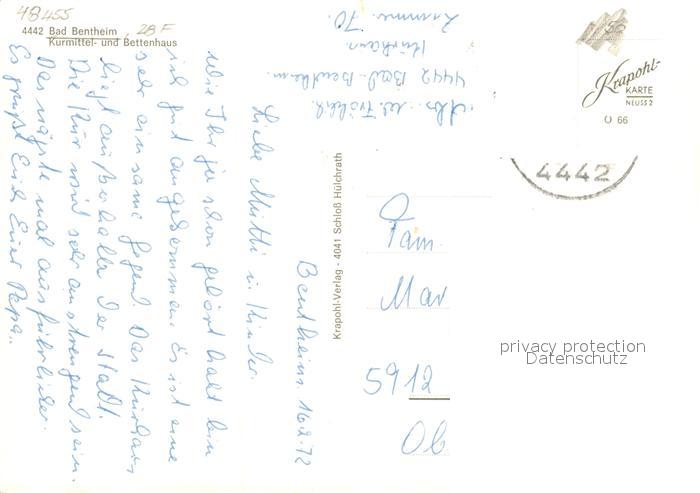 48455
28 F
4442 Bad Bentheim
Kurmittel- und Bettenhaus
Abs. W. Fröhlich
4442 Bad-Bentheim.
Kurhaus
Zimmer. 70.
Krapohl-
KARTE
NEUSS 2
O 66
4442
Krapohl-Verlag - 4041 Schloß Hülchrath
Bentheim 16.2.72
Liebe Mutti u. Kinder.
Wie Ihr ja schon gehört habt bin
ich gut angekommen. Es ist eine
sehr einsame Gegend. Das Kurhaus
liegt außerhalb der Stadt.
Die Kur wird sehr anstrengend sein.
Das nächste mal ausführlicher.
Es grüßt Euch Euer Papa.
Fam.
Mar
5912
Ob
privacy protection
Datenschutz